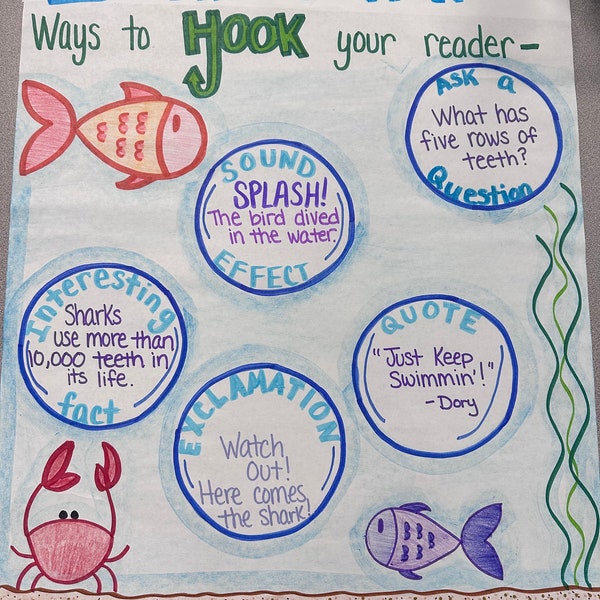 Ways to HOOK your reader-
ASK a
What has
five rows of
teeth?
Question
SOUND
SPLASH!
The bird dived
in the water.
EFFECT
Interesting
Sharks
use more than
10,000 teeth in
its life.
fact
QUOTE
"Just Keep
Swimmin'!"
-Dory
EXCLAMATION
Watch
Out!
Here comes
the shark!